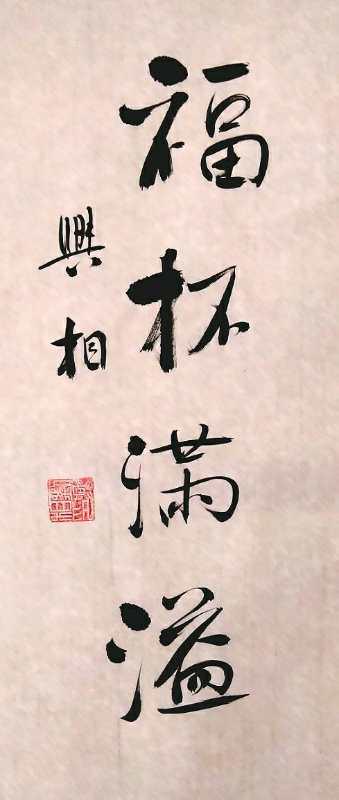 福杯满溢
興相